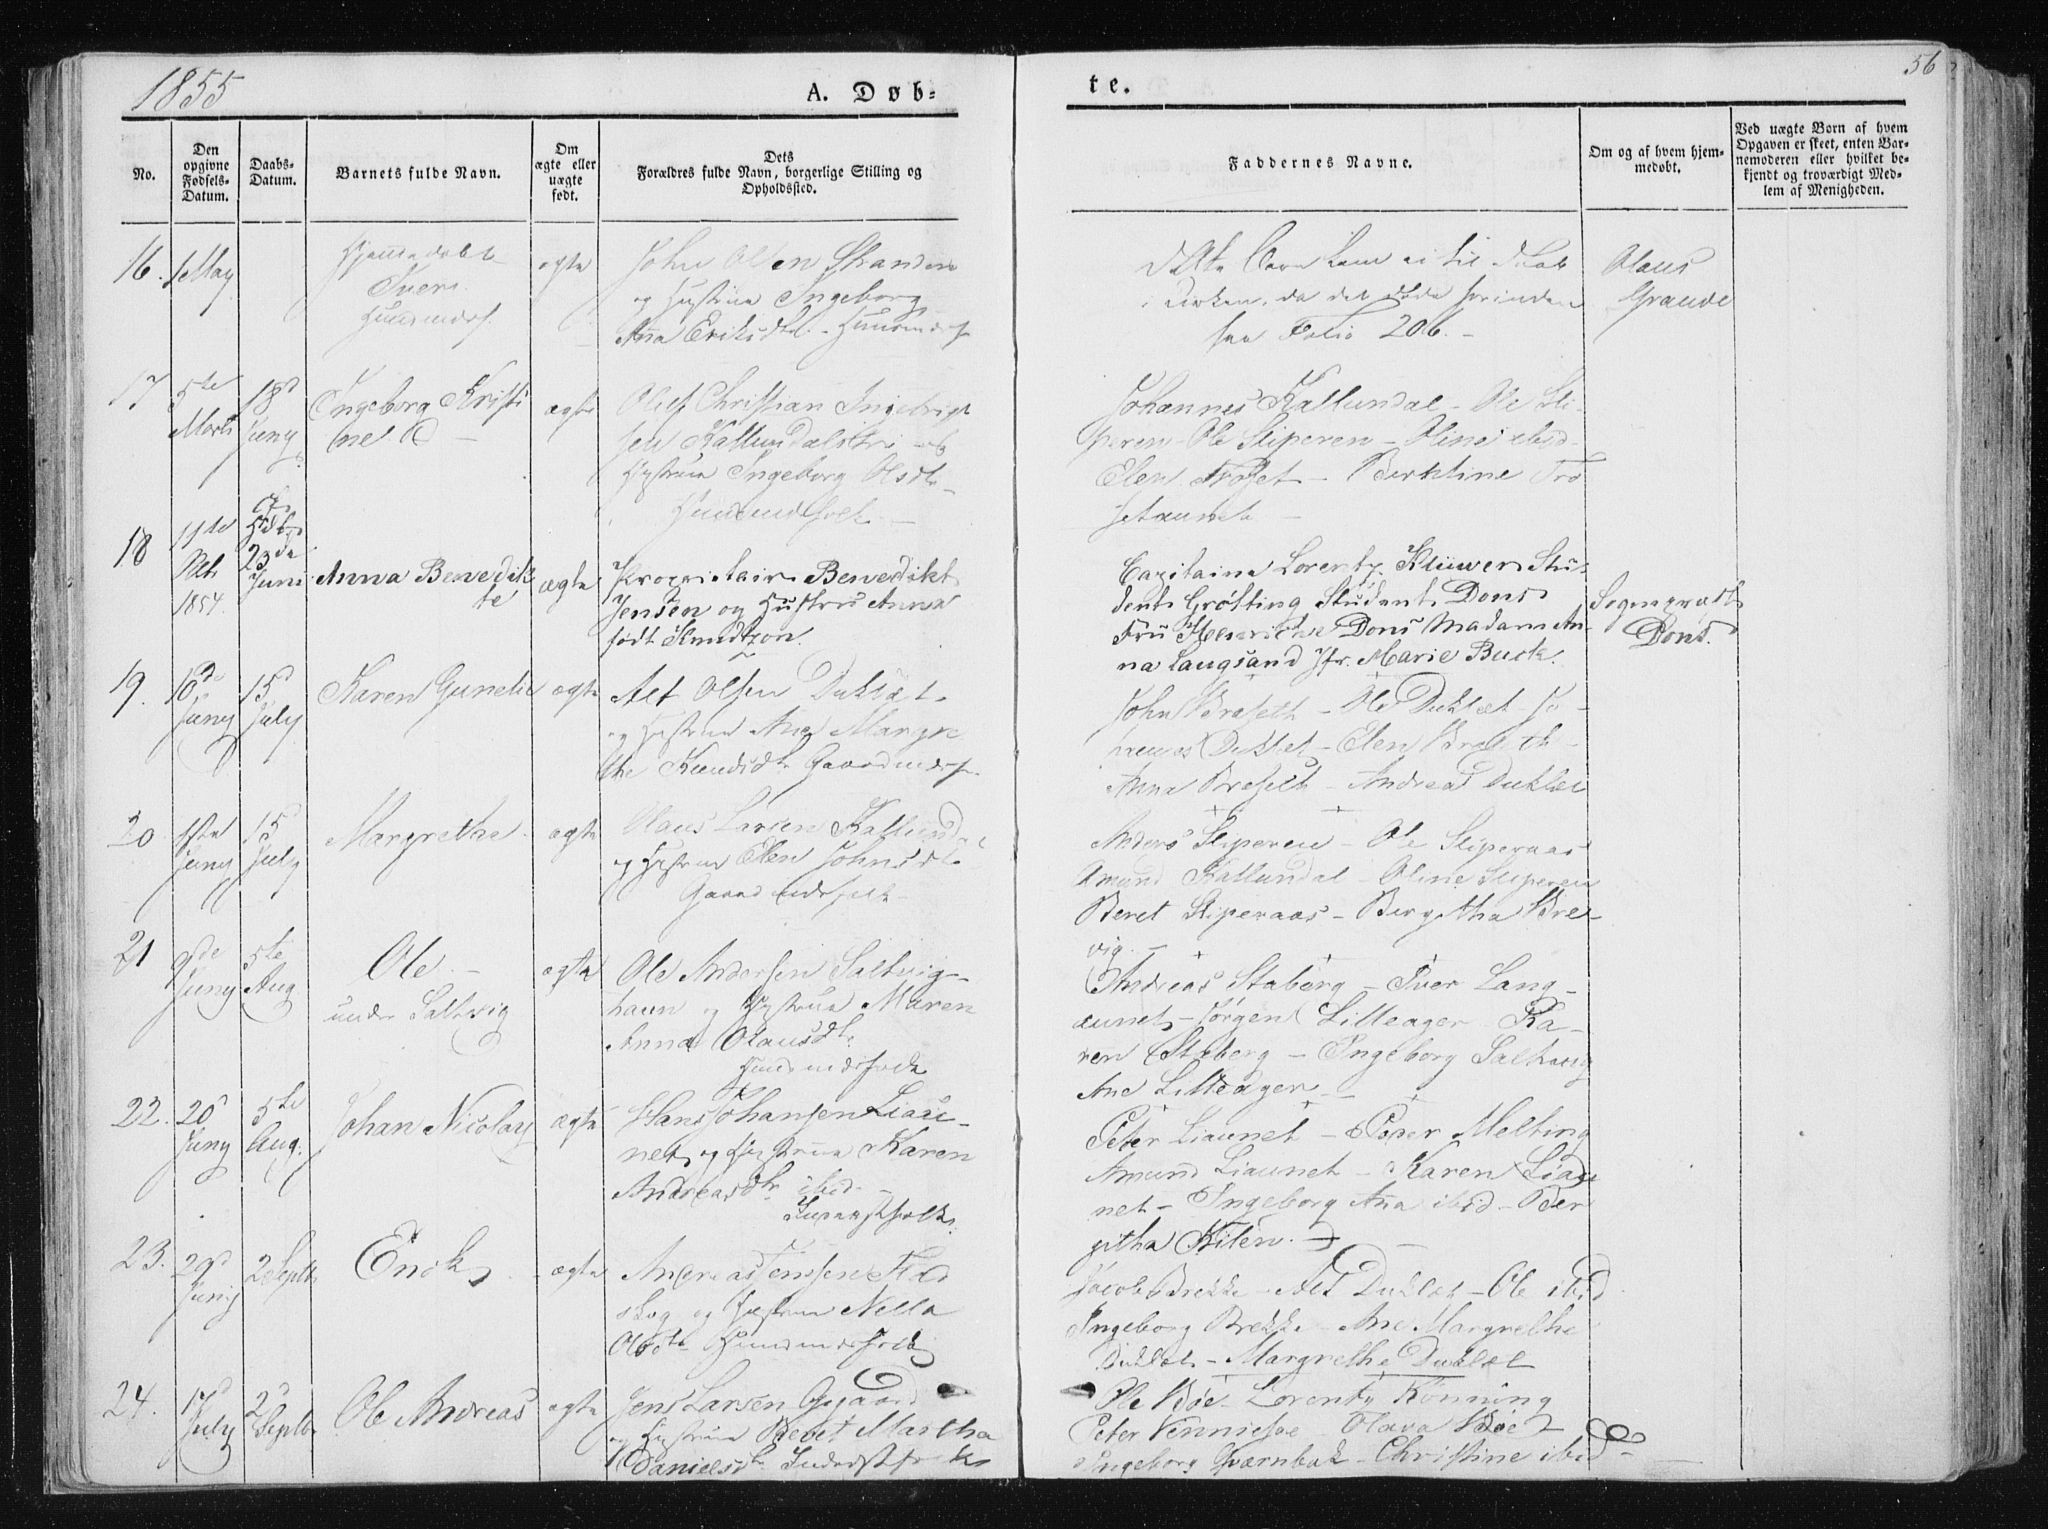 1855
A. Døb-
te.
56
No.
Den
opgivne
Fødsels-
Datum.
Daabs-
Datum.
Barnets fulde Navn.
Om
ægte eller
uægte
født.
Dets
Forældres fulde Navn, borgerlige Stilling og
Opholdssted.
Faddernes Navne.
Om og af hvem hjem-
medøbt.
Ved uægte Børn af hvem
Opgaven er skeet, enten Bar-
nemoderen eller hvilket be-
kjendt og troværdigt Med-
lem af Menigheden.
16.
May
Hjemmedøbt
Iver
ægte
John Olsen
og Hustrue Ingeborg
Anna Eriksdtr.
da det døde forinden
see Folio 206.
Olaus
Grande
17
5te
Marts
18d
Juny
Ingeborg Kristi
ne
ægte
Olef Christian Ingebrigt
sen Kallundal
Hustrue Ingeborg Olsdtr
Johannes Kallundal - Ole Sli-
peren - Ole Sliperen - Oline ibid -
Elen Troset - Berktine Tro
setaunet
18
11te
Oct.
1854.
23de
Juni
Anna Benedik
te
ægte
Proprietair Benedikt
Jensen og Hustru Anna
født Knudtzon.
Capitaine Lorentz Klüwer Stu-
dent Grøtting Student Dons
Fru Henrikke Dons Madam An-
na Langsand Jfr. Marie Buck.
Sogneprest
Dons.
19.
10d
Juny
15d
July
Karen Gunelie
ægte
Alt Olsen Duklæt
og Hustrue Ane Margre
the Knudsdtr Gaardmdsf.
John Braseth - Ole Duklæt - Jo-
hannes Duklæt - Elen Braseth -
Anna Braseth - Andreas Duklæt
20.
1ste
Juny
15
July
Margrethe
ægte
Olaus Larsen Kallundal
og Hustrue Elen Johnsdtr
Gaardmdsfolk
Anders Sliperen - Ole Sliperaas
Amund Kallundal - Oline Sliperen
Beret Sliperaas - Bergitha Bre-
vig. -
21
9de
Juny
5te
Aug.
Ole -
under Saltvig
ægte
Ole Andersen Saltvig-
haun og Hustrue Maren
Anna Olausdtr
Huusmdsfolk
Andreas Staberg - Iver Lang-
aunet - Jørgen Lilleager - Ka-
ren Staberg - Ingeborg Saltvig
Ane Lilleager -
22.
20
Juny
5te
Aug.
Johan Nicolay
ægte
Hans Johansen Liau-
net og Hustrue Karen
Andreasdtr ibid -
Inderstfolk.
Peter Liaunet - Peder Melting
Amund Liaunet - Karen Liau
net - Ingeborg Ana ibid - Ber
githa Kilen.
23.
29d
Juny
2 Septb
Enok
ægte
Andreas Jenssen
skog og Hustrue Nella
Olsdtr Huusmdsfolk
Jacob Brekke - Alt Duklæt - Ole ibid
Ingeborg Brekke - Ane Margrethe
Duklæt - Margrethe Duklæt
24.
17d
July
2d
Septb
Ole Andreas
ægte
Jens Larsen
og Hustrue Beret Martha
Danielsdtr Inderstfolk
Ole Bøe - Lorentz Rønning
Peter Vennesøe Olava Bøe
Ingeborg Qværnbak - Christine ibid